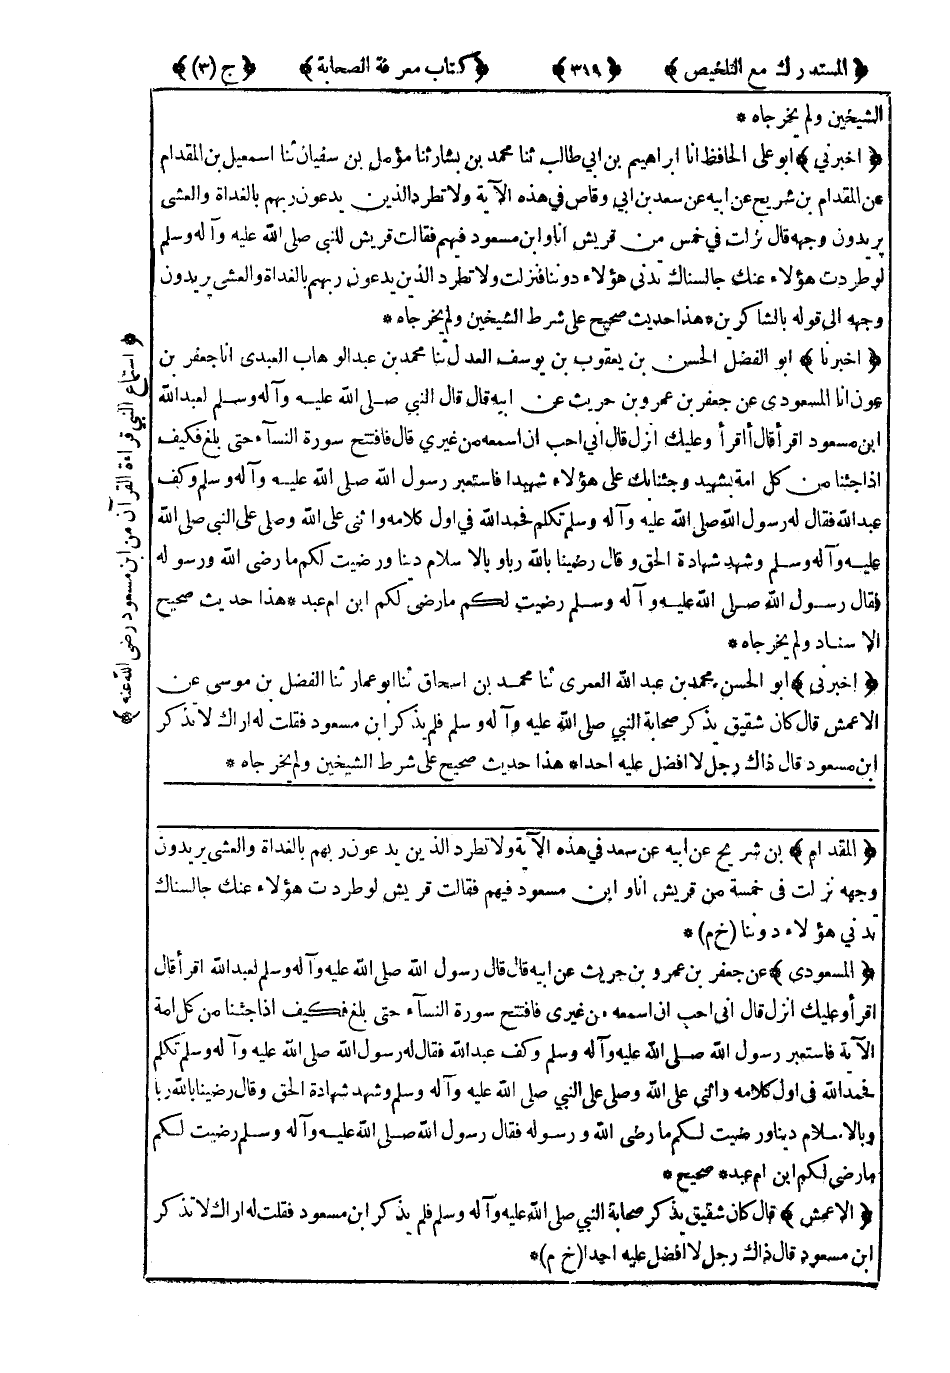 ﴿ المستدرك مع التلخيص ﴾ ﴿ ٣١٩ ﴾ ﴿ كتاب معرفة الصحابة ﴾ ﴿ ج (٣) ﴾
الشيخين ولم يخرجاه *
﴿ اخبرني ﴾ ابو على الحافظ انا ابراهيم بن ابي طالب ثنا محمد بن بشار ثنا مؤمل بن سفيان ثنا اسمعيل بن المقدام
عن المقدام بن شريح عن ابيه عن سعد بن ابي وقاص في هذه الآية ولا تطرد الذين يدعون ربهم بالغداة والعشى
يريدون وجهه قال نزلت في خمس من قريش انا وابن مسعود فيهم فقالت قريش للنبي صلى الله عليه وآله وسلم
لو طردت هؤلاء عنك جالسناك يدني هؤلاء دوننا فنزلت ولا تطرد الذين يدعون ربهم بالغداة والعشى يريدون
وجهه الى قوله بالشاكرين * هذا حديث صحيح على شرط الشيخين ولم يخرجاه *
﴿ اخبرنا ﴾ ابو الفضل الحسن بن يعقوب بن يوسف العدل ثنا محمد بن عبد الوهاب العبدى انا جعفر بن
عون انا المسعودى عن جعفر بن عمرو بن حريث عن ابيه قال قال النبي صلى الله عليه وآله وسلم لعبد الله
ابن مسعود اقرأ قال أاقرأ وعليك انزل قال اني احب ان اسمعه من غيري قال فافتتح سورة النسآء حتى بلغ فكيف
اذا جئنا من كل امة بشهيد وجئنابك على هؤلاء شهيدا فاستعبر رسول الله صلى الله عليه وآله وسلم وكف
عبد الله فقال له رسول الله صلى الله عليه وآله وسلم تكلم فحمد الله في اول كلامه واثنى على الله وصلى على النبي صلى الله
عليه وآله وسلم وشهد شهادة الحق وقال رضينا بالله ربا وبالاسلام دينا ورضيت لكم ما رضى الله ورسوله
فقال رسول الله صلى الله عليه وآله وسلم رضيت لكم ما رضى لكم ابن ام عبد * هذا حديث صحيح
الاسناد ولم يخرجاه *
﴿ اخبرنى ﴾ ابو الحسن محمد بن عبد الله العمرى ثنا محمد بن اسحاق ثنا ابو عمار ثنا الفضل بن موسى عن
الاعمش قال كان شقيق يذكر صحابة النبي صلى الله عليه وآله وسلم فلم يذكر ابن مسعود فقلت له اراك لا تذكر
ابن مسعود قال ذاك رجل لا افضل عليه احدا * هذا حديث صحيح على شرط الشيخين ولم يخرجاه *
﴿ استماع النبي قراءة القرآن من ابن مسعود رضى الله عنه ﴾
﴿ المقدام ﴾ بن شريح عن ابيه عن سعد في هذه الآية ولا تطرد الذين يدعون ربهم بالغداة والعشى يريدون
وجهه نزلت فى خمسة من قريش انا وابن مسعود فيهم فقالت قريش لو طردت هؤلاء عنك جالسناك
يدني هؤلاء دوننا (خ م) *
﴿ المسعودى ﴾ عن جعفر بن عمرو بن حريث عن ابيه قال قال رسول الله صلى الله عليه وآله وسلم لعبد الله اقرأ قال
اقرأ وعليك انزل قال انى احب ان اسمعه من غيرى فافتتح سورة النسآء حتى بلغ فكيف اذا جئنا من كل امة
الآية فاستعبر رسول الله صلى الله عليه وآله وسلم وكف عبد الله فقال له رسول الله صلى الله عليه وآله وسلم تكلم
فحمد الله فى اول كلامه واثني على الله وصلى على النبي صلى الله عليه وآله وسلم وشهد شهادة الحق وقال رضينا بالله ربا
وبالاسلام دينا ورضيت لكم ما رضى الله ورسوله فقال رسول الله صلى الله عليه وآله وسلم رضيت لكم
ما رضى لكم ابن ام عبد * صحيح *
﴿ الاعمش ﴾ قال كان شقيق يذكر صحابة النبي صلى الله عليه وآله وسلم فلم يذكر ابن مسعود فقلت له اراك لا تذكر
ابن مسعود قال ذاك رجل لا افضل عليه احدا (خ م) *